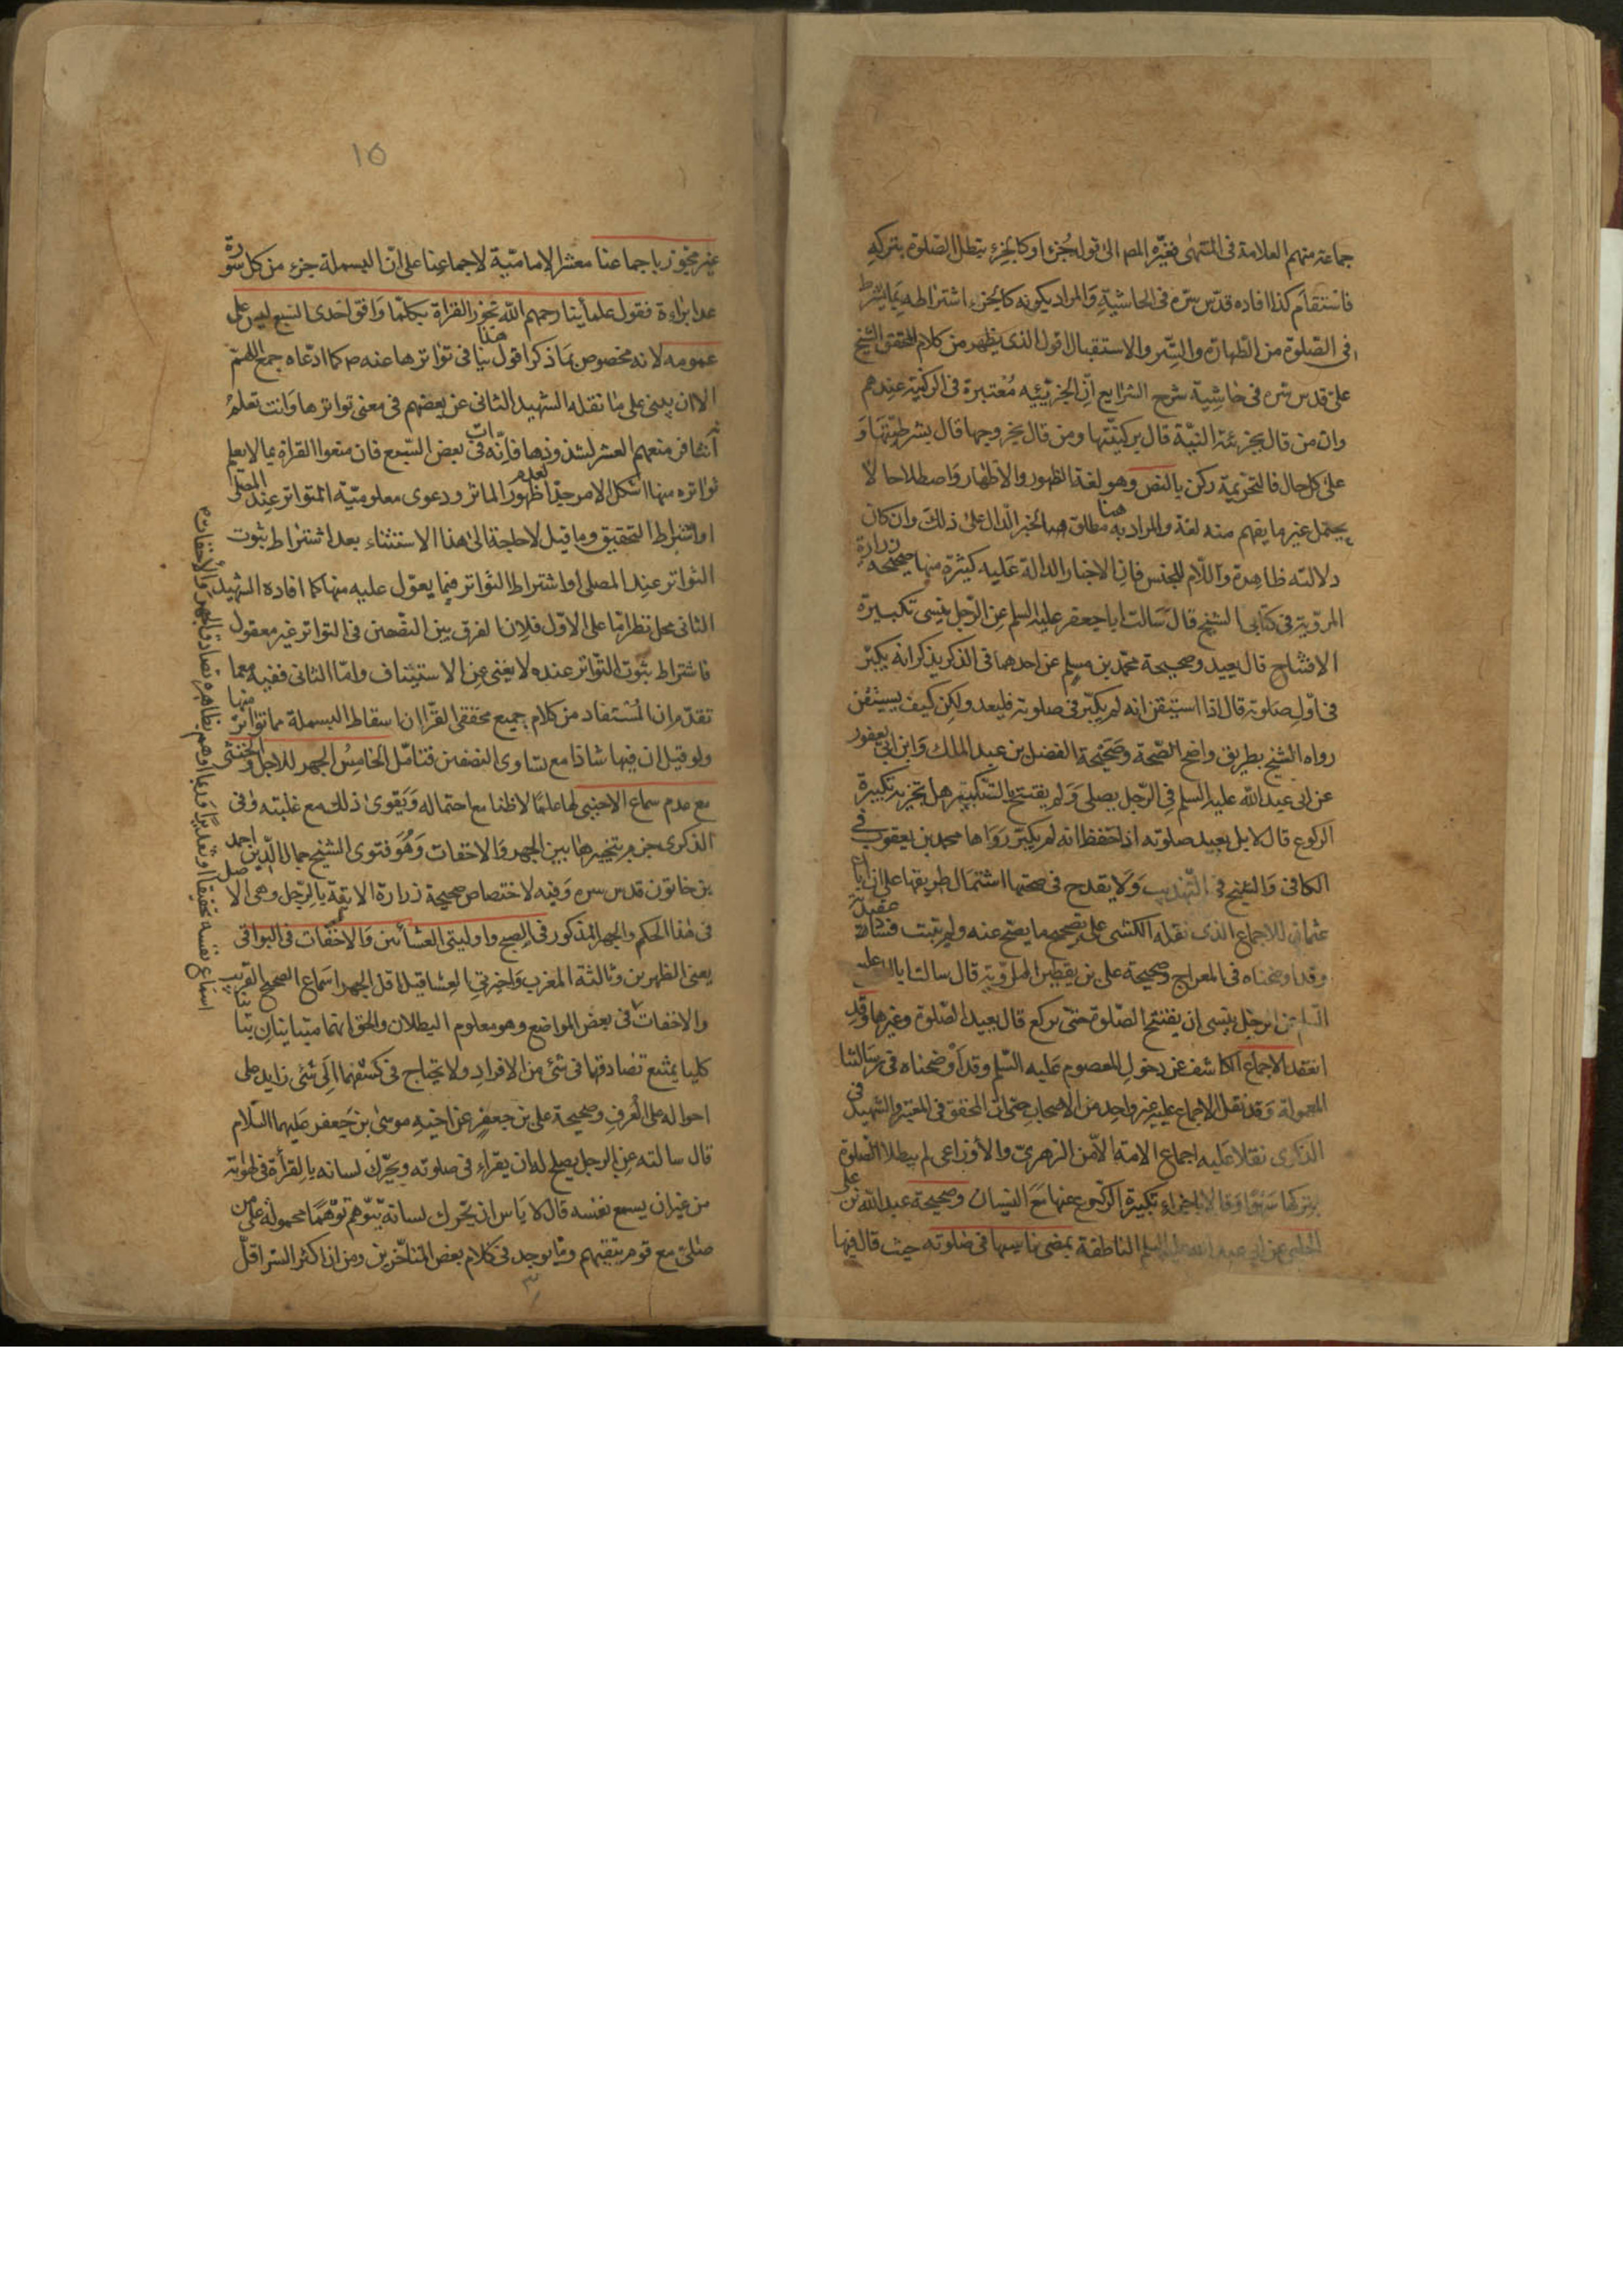 جماعة منهم العلامة فى المنتهى فغيّره المص الى قوله جُزء او كالجزء يبطل الصّلوة بتركه
فاستقام كذا افاده قدّس سرّه فى الحاشية وَالمراد بكونه كالجزء اشتراطه بما يشترط
فى الصّلوة من الطّهارة والسّتر والاستقبال اقول الذى يظهر من كلام المحقق الشيخ
على قدس سره فى حاشية شرح الشرايع انّ الجزئيه مُعتبرة فى الركنية عندهم
وان من قال بجزئية النيّة قال بركنيّتها ومن قال بخروجها قال بشرطيّتها وَ
على كل حال فالتحريمة ركن بالنص وهو لغة الظهور والاظهار وَاصطلاحا لا
يحتمل غير ما يفهم منه لغة والمراد به هنا مطلق الخبر الدال على ذلك وان كان
دلالته ظاهرة وَاللّام للجنس فان الاخبار الدالة عَليه كثيرة منها صحيحة زرارة
المرويّة فى كتابى الشيخ قال سَالت ابا جعفر عليه السلم عن الرّجل ينسى تكبيرة
الافتتاح قال يعيد وصحيحة محمّد بن مسلم عن احدهما فى الذى يذكر انه لم يكبّر
فى اوّل صلوته قال اذا استيقن انه لم يكبّر فى صلوته فليعد ولكن كيف يستيقن
رواه الشيخ بطريق واضح الصّحة وصَحيحة الفضل بن عبد الملك وَابن ابى يعفور
عن ابى عبد الله عليه السلم فى الرّجل يصلى وَلم يفتتح بالتّكبير هل تجزيه تكبيرة
الركوع قال لا بل يعيد صلوته اذا حفظ انه لم يكبّر رَوَاها محمد بن يعقوب فى
الكافى وَالشيخ فى التّهذيب وَلا يقدح فى صحتها اشتمال طريقها على ابان
عثمان للاجماع الذى نقله الكشى على تصحيح ما يصحّ عنه ولم يثبت فساد عقيدته
وقد اوضحناه فى المعراج وصحيحة على بن يقطين المرويّة قال سالت ابا
السلم عن الرجل ينسى ان يفتتح الصّلوة حتى يركع قال يعيد الصّلوة وغيرها وَقد
انعقد الاجماع الكاشف عن دخول المعصوم عَليه السّلم وقد اَوضحناه فى رسَالتنا
المعمولة وَقد نقل الاجماع عليه غير واحد من الاصحاب حتى انّ المحقق فى المعتبر والشهيد فى
الذكرى نقلا عَليه اجماع الامة الاّ من الزهرىّ والأوزاعى لم يبطلا الصّلوة
بتركها سَهوًا وَقالا باجزاء تكبيرة الرّكوع عنها مَعَ النسيان وصحيحة عبد الله بن على
الحلبى عن ابى عبد الله عليه السلم الناطقة بمضى ناسيها فى صَلوته حيث قال فيها
١٥
غير مجوّز باجماعنا معشر الإماميّة لاجماعنا على انّ البسملة جزء من كل سورة
عدا براءة فقول علمائنا رحمهم الله تجوز القراة بكلّما وافق احدى السّبع ليس على
عمومه لانه مخصوص بمَا ذكر اقول هذا بنا فى تواترها عنه ص كما ادّعاه جمع اللهمّ
الا ان يبنى على مَا نقله الشهيد الثانى عن بعضهم فى معنى تواترها وَانت تعلم
فى بعض السّبع فان منعوا القراة بما لا يعلم
تواتره منها اشكل الامر جدّا لعدم ظهور الماثر ودعوى معلوميّة المتواتر عند المصلى
او اشتراط التحقيق وما قيل لا حاجة الى هذا الاستثناء بعد اشتراط ثبوت
التواتر عند المصلى او اشتراط التواتر فيما يعوّل عليه منها كما افاده الشهيد
الثانى محل نظر امّا على الاوّل فلانّ الفرق بين النقصين فى التواتر غير معقول
فاشتراط ثبوت التّواتر عنده لا يغنى عن الاستثناف وامّا الثانى ففيه مع ما
تقدّم ان المُستفاد من كلام جميع محققى القرّا ان اسقاط البسملة مما تواتر منها
ولو قيل ان فيها شاذا مع تساوى النصفين فتامّل الخامِسُ الجهر للرجل والخنثى
مع عدم سماع الاجنبى لها علمًا لا ظنا مع احتماله وَيقوى ذلك مع غلبته وَفى
الذكرى جزم بتخييرها بين الجهر وَالاخفات وَهُوَ فتوى الشيخ جمال الدّين احمد
بن خاتون قدس سره وَفيه لاختصاص صحيحة زرارة الاتية بالرّجل وهى الاصل
فى هذا الحكم والجهر المذكور فى الصبح واوليتى العشائين وَالاخفات فى البواقى
يعنى الظهرين وثالثة المغرب وَاخيرتى العشا قيل اقل الجهر اسماع الصحيح القريب
والاخفات فى بعض المواضع وهو معلوم البطلان والحق انهما متباينان تباينا
كليا يمتنع تصادقهما فى شئ من الافراد ولا يحتاج فى كشفهما الَى شئ زايد على
احواله على العُرفِ وصحيحة على بن جعفر عن اخيه موسى بن جَعفر عَليهما السّلام
قال سالته عن الرجل يصلح له ان يقراء فى صلوته ويحرّك لسانه بالقرأة فى لهواته
من غير ان يسمع نفسه قال لا بَاس ان يحّرك لسانه يتوّهم توهّمًا محمولة على من
صلى مع قوم يتقيهم وما يوجد فى كلام بعض المتاخّرين ومن ان اكثر السّر اقلّ
اسماع نفسه تحقيقا او تقديرًا